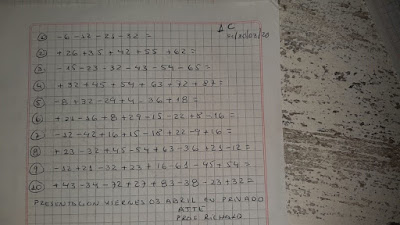 1C
① -6-12-21-32=
② +26+35+42+55+62=
③ -15-23-32-43-54-65=
④ +32+45+54+63+72+87=
⑤ -8+32-29+4-36+18=
⑥ +22-16+8+29-15-26+5-16=
⑦ -12-42+16+15-18+22-9+16=
⑧ +23-32+45-54+63-36+21-12=
⑨ -12+21-32+23+16-61-45+54=
⑩ +43-34-72+27+83-38-23+32=
PRESENTACION VIERNES 03 ABRIL EN PRIVADO
ATTE
PROF RICHARD